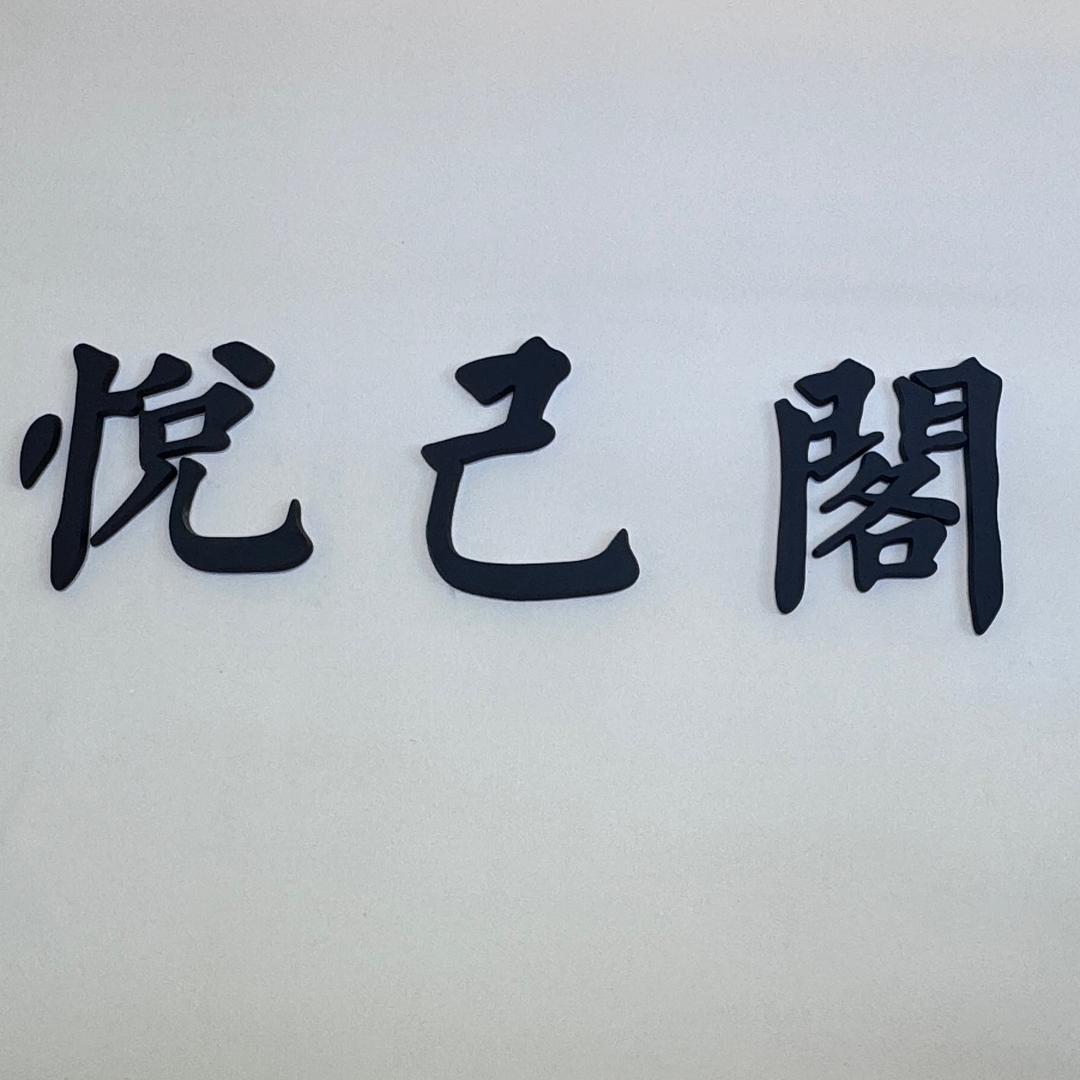 悅己閣